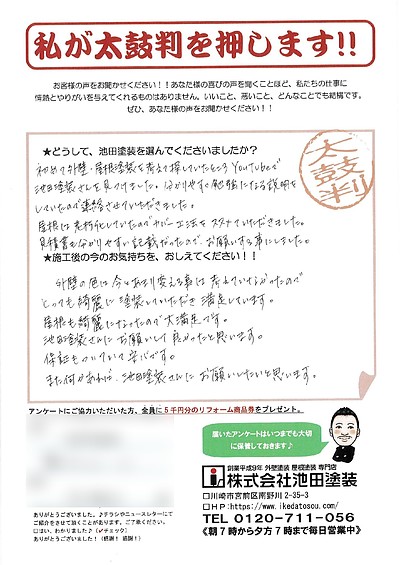 私が太鼓判を押します!!
お客様の声をお聞かせください！！あなた様の喜びの声を聞くことほど、私たちの仕事に
情熱とやりがいを与えてくれるものはありません。いいこと、悪いこと、どんなことでも結構です。
ぜひ、あなた様の声をお聞かせください！！
★どうして、池田塗装を選んでくださいましたか？
太鼓判
初めて外壁・屋根塗装を考えて探していたところYouTubeで
池田塗装さんを見つけました。分かりやすく勉強になる説明を
していたので連絡させていただきました。
屋根は老朽化していたのでカバー工法をススメていただきました。
見積書も分かりやすい記載だったので、お願いする事にしました。
★施工後の今のお気持ちを、おしえてください！！
外壁の色は今とあまり変える事は考えていなかったので
とっても綺麗に塗装していただき満足しています。
屋根も綺麗になったので大満足です。
池田塗装さんにお願いして良かったと思います。
保証もついていて安心です。
また何かあれば、池田塗装さんにお願いしたいと思います。
アンケートにご協力いただいた方、全員に５千円分のリフォーム商品券をプレゼント。
届いたアンケートはいつまでも大切
に保管しておきます♪
創業平成9年 外壁塗装 屋根塗装 専門店
株式会社池田塗装
□川崎市宮前区南野川2-35-3
□HP:https://www.ikedatosou.com/
TEL 0120-711-056
《朝7時から夕方7時まで毎日営業中》
ありがとうございました。♪チラシやニュースレターにて
ご紹介をさせて頂くことがあります。ご了承ください。
□はい、わかりました♪（✓チェック）
ありがとうございました！（感謝！ 感謝！）